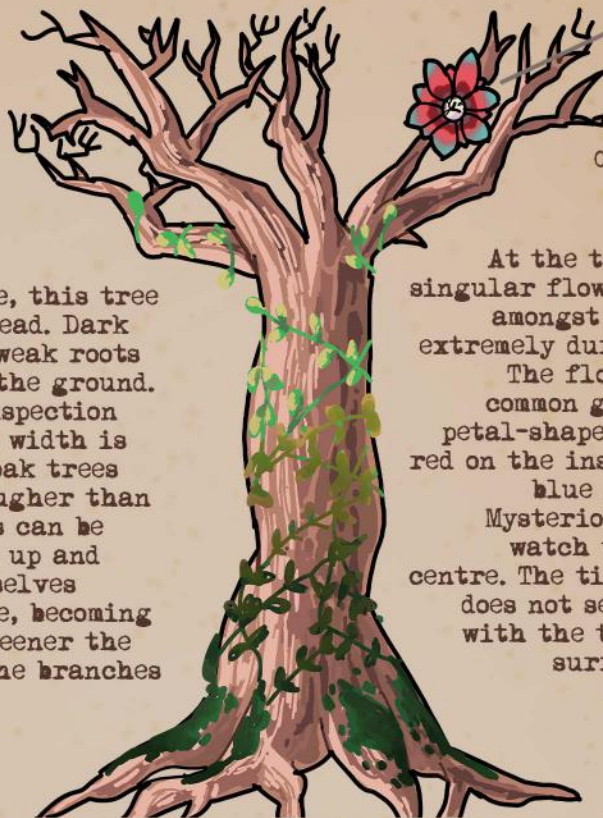 e, this tree
ead. Dark
weak roots
the ground.
spection
width is
oak trees
ugher than
s can be
up and
selves
e, becoming
eener the
he branches
At the t
singular flow
amongst
extremely du
The flo
common g
petal-shape
red on the ins
blue
Mysterio
watch
centre. The ti
does not se
with the t
sur